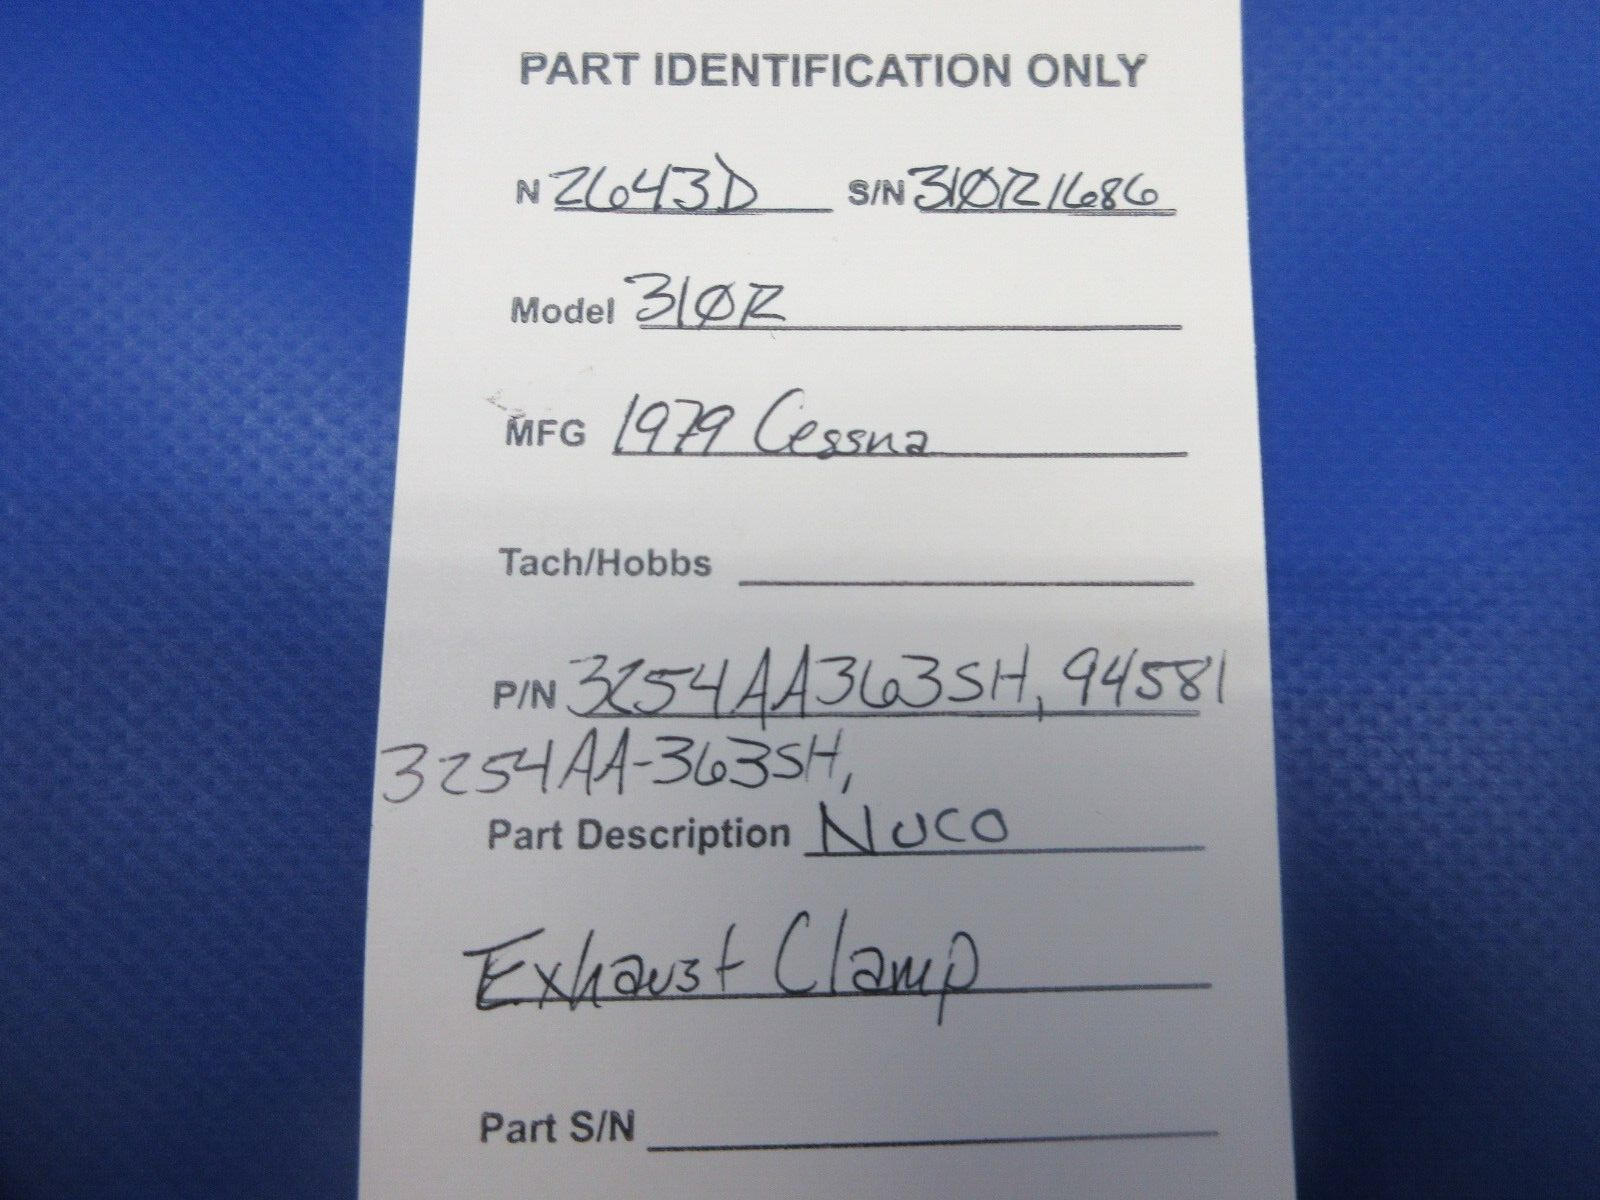 PART IDENTIFICATION ONLY
N 2643D S/N 310R1686
Model 310R
MFG 1979 Cessna
Tach/Hobbs
P/N 3254AA363SH, 94581
3254AA-363SH,
Part Description NUCO
Exhaust Clamp
Part S/N